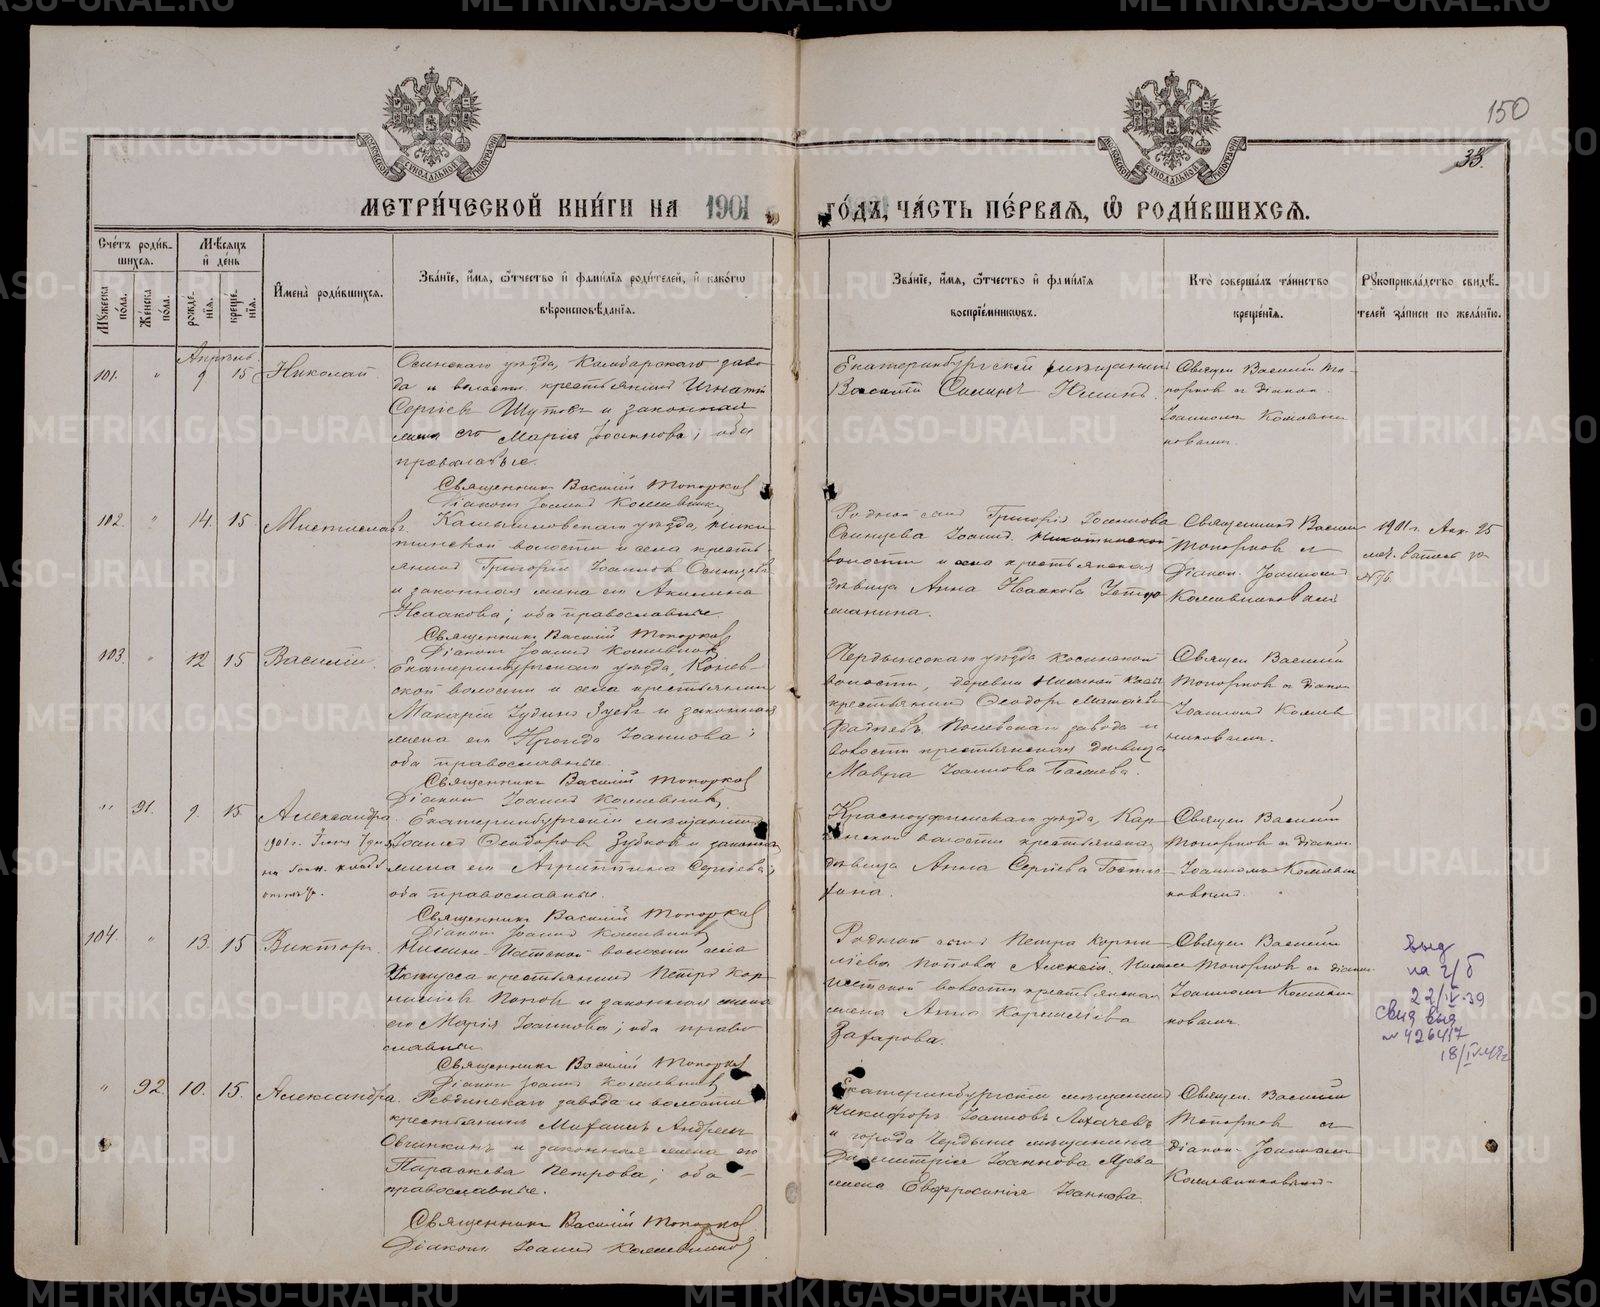 150
33.
МОСКОВСКОЙ СУНОДАЛЬНОЙ ТИПОГРАФІИ
МОСКОВСКОЙ СУНОДАЛЬНОЙ ТИПОГРАФІИ
МЕТРИ́ЧЕСКОЙ КНИ́ГИ НА 1901 ГО́ДЪ, ЧА́СТЬ ПЕ́РВАЯ, Ѡ РОДИ́ВШИХСЯ.
Сче́тъ роди́в-
шихся.
Му́жеска по́ла.
Же́нска по́ла.
Мѣ́сяцъ
и де́нь
рожде́-
нія.
креще́-
нія.
Имена̀ роди́вшихся.
Зва́ніе, и́мя, ѻ́тчество и фами́лія роди́телей, и како́гѡ
вѣроисповѣ́данія.
Зва́ніе, и́мя, ѻ́тчество и фами́лія
воспріе́мниковъ.
Кто̀ соверша́лъ та́инство
креще́нія.
Рукоприкла́дство свидѣ́-
телей за́писи по жела́нію.
Апрѣль
101. " 9 15 Николай
Осинскаго уѣзда, Камбарскаго заво-
да и волости крестьянинъ Игнатій
Сергіевъ Шутовъ и законная
жена его Марія Іоаннова; оба
православные.
Священникъ Василій Топорковъ
Діаконъ Іоаннъ Кожевниковъ
Екатеринбургскій мѣщанинъ
Василій
Священ Василій То-
порков с діакон
Іоанномъ Кожевни
ковымъ.
102. " 14. 15 Мистислав
Камышловскаго уѣзда, Ники
тинской волости и села кресть
янинъ Григорій Іоаннов Осинцевъ
и законная жена его Акилина
Исаакова; оба православные.
Священникъ Василій Топорковъ
Діаконъ Іоаннъ Кожевников
Родной сын Григорія Іоаннова
Осинцева Іоаннъ. Никитинской
волости и села крестьянская
дѣвица Анна Исаакова
Священникъ Василий
Топорков с
Діакон. Іоанномъ
Кожевниковым
1901 г. Апр. 25
за
№ 76.
103. " 12 15 Василій.
Екатеринбургскаго уѣзда, Конев-
ской волости и села крестьянинъ
Макарій Іудинъ Зуевъ и законная
жена его Ироида Іоаннова;
оба православные.
Священникъ Василій Топорков
Діакон Іоаннъ Кожевников
Чердынскаго уѣзда Косинской
волости, деревни Нижней
крестьянинъ Ѳеодоръ
Фадѣевъ, Полевскаго завода и
волости крестьянская дѣвица
Мавра Іоаннова
Священ Василій
Топорков с діакон
Іоанном Кожев
никовымъ.
" 91. 9. 15. Александра.
1901 г.
Екатеринбургскій мѣщанинъ
Іоаннъ Ѳеодоров Зубков и законная
жена его Агриппина Сергіева;
оба православные.
Священникъ Василій Топорков
Діакон Іоаннъ Кожевников
Красноуфимскаго уѣзда, Кар-
гинской волости крестьянская
дѣвица Анна Сергіева
Священ Василій
Топорков с діакон
Іоанномъ Кожевни
ковымъ.
104. " 13. 15 Виктор.
Нижне-Исетской волости села
Уктусса крестьянинъ Петръ Кор-
ниліев Попов и законная жена
его Марія Іоаннова; оба право
славные.
Священникъ Василій Топорков
Діакон Іоаннъ Кожевников
Родной сынъ Петра Корни-
ліева Попова Алексій. Нижне
Исетской волости крестьянская
жена Анна Корниліева
Захарова.
Священ Василій
Топорков с діакон
Іоанномъ Кожевни
ковымъ.
выд
на г/б
22/IV-39
Свид выд
№ 426417
18/IV
" 92. 10. 15. Александра.
Ревдинскаго завода и волости
крестьянинъ Михаилъ Андреев
Овчинкинъ и законная жена его
Параскева Петрова; оба
православные.
Священникъ Василій Топорков
Діаконъ Іоаннъ Кожевников
Екатеринбургскій мѣщанинъ
Никифоръ Іоанновъ Лохачевъ
и города Чердыни мѣщанина
Димитрія Іоаннова
жена Евфросинія Іоаннова
Священ. Василій
Топорков с
діакон. Іоанном
Кожевниковым
METRIKI.GASO-URAL.RU